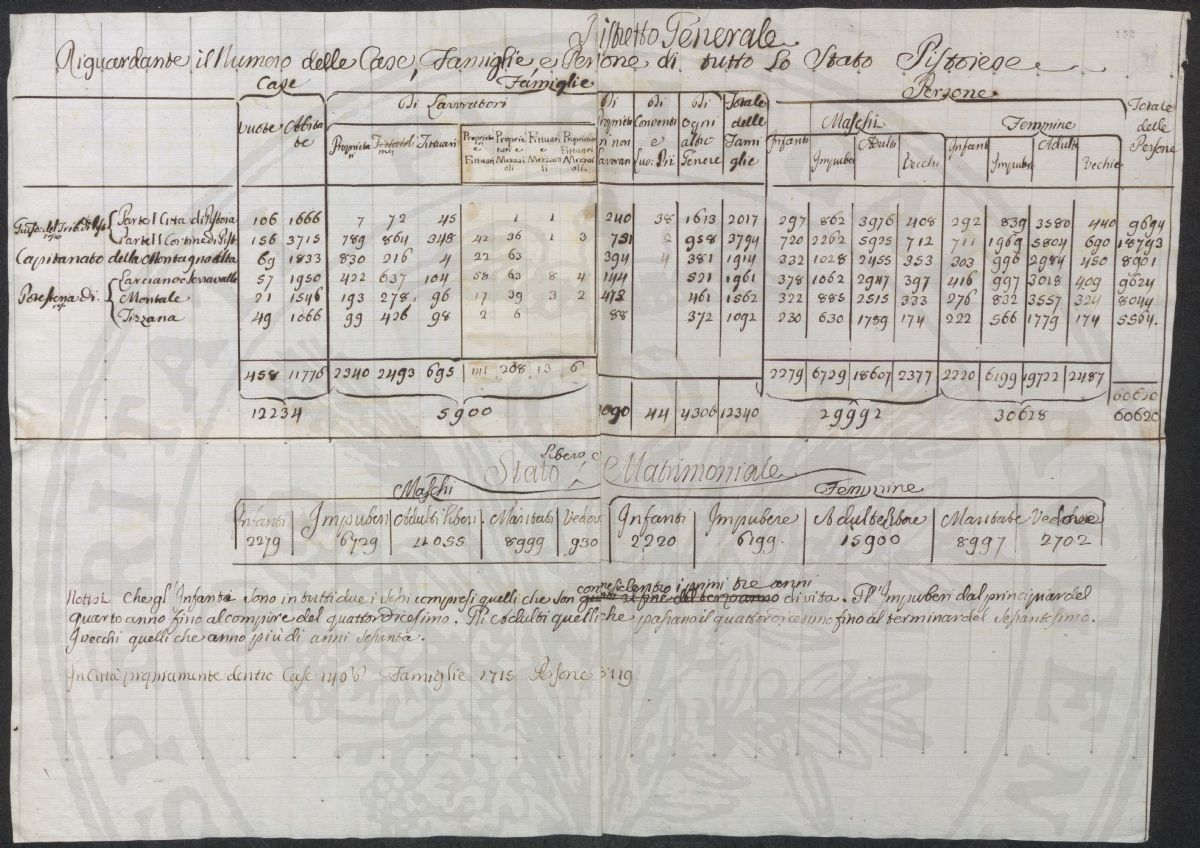 Ristretto Generale
Riguardante il Numero delle Case, Famiglie, e Persone di tutto lo Stato Pistoiese
Case Famiglie Persone
Vuote Abitate Di Lavoratori Di Proprietari non Lavoran Di Conventi e Di Ogni altro Genere Totale delle Famiglie Maschi Femmine Totale delle Persone
Proprieta Fittuari Proprietari e Fittuari Proprietari e Mezzaioli Fittuari e Mezzaioli Proprietari Fittuari e Mezzaioli. Infanti Impuberi Adulti Vecchi Infanti Impuberi Adulti Vecchie
Parte I Città di Pistoia 106 1666 7 72 45 1 1 240 38 1613 2017 297 862 3976 408 292 839 3580 440 9694
Parte II Cortine di Pist. 156 3715 789 864 348 42 36 1 3 751 2 958 3794 720 2262 5925 712 711 1969 5804 690 18793
Capitanato della Montagna Alta 69 1833 830 216 4 22 63 394 4 381 1914 332 1028 2455 353 303 996 2984 450 8901
Larciano e Serravalle 57 1950 422 637 104 58 63 8 4 144 521 1961 378 1062 2947 397 416 997 3018 409 9624
Potesteria di Montale 21 1546 193 278 96 17 39 3 2 473 461 1562 322 885 2515 333 276 832 3557 324 8044
Tizzana 49 1066 99 426 98 2 6 88 372 1092 230 630 1789 174 222 566 1779 174 5564.
458 11776 2340 2493 695 141 208 13 6 2279 6729 18607 2377 2220 6199 19722 2487
12234 5900 2090 44 4306 12340 29992 30628 60620
Libero e
Stato Matrimoniale
Maschi Femmine
Infanti Impuberi Adulti liberi Maritati Vedovi Infanti Impubere Adulte libere Maritate Vedove
2279 6729 8999 930 2220 6199 8997 2702
connesi dentro i primi tre anni
Notisi Che gl'Infanti sono in tutti due i sessi compresi quelli che son di vita. Gl'Impuberi dal principiar del
quarto anno fino al compire del quattordicesimo. Gli Adulti quelli che passano il quattordicesimo fino al terminar del sessantesimo.
I vecchi quelli che anno più di anni sessanta.
In Città propriamente dentro Case 1406 Famiglie 1715 Persone 8119